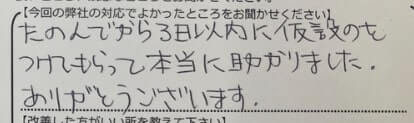 【今回の弊社の対応でよかったところをお聞かせください】
たのんでから3日以内に仮設のを
つけてもらって本当に助かりました.
ありがとうございます.
【改善した方がいい所を教えて下さい】